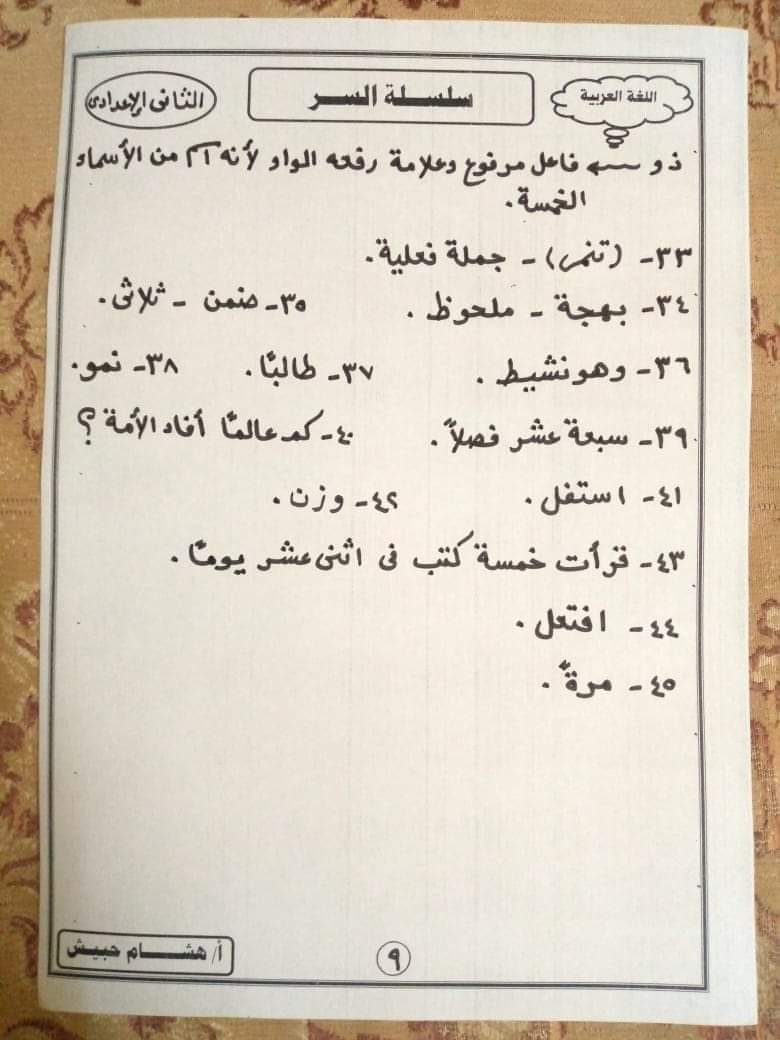 اللغة العربية
سلسلة السر
الثانى الإعدادى
ذو ← فاعل مرفوع وعلامة رفعه الواو لأنه اسم من الأسماء
الخمسة.
٣٣- (تنمر) - جملة فعلية.
٣٤- بهجة - ملحوظ. ٣٥- ضمن - ثلاثى.
٣٦- وهو نشيط. ٣٧- طالبًا. ٣٨- نمو.
٣٩- سبعة عشر فصلاً. ٤٠- كم عالمًا أفاد الأمة؟
٤١- استفل. ٤٢- وزن.
٤٣- قرأت خمسة كتب فى اثنى عشر يومًا.
٤٤- افتعل.
٤٥- مرةً.
أ/ هشام حبيش
٩